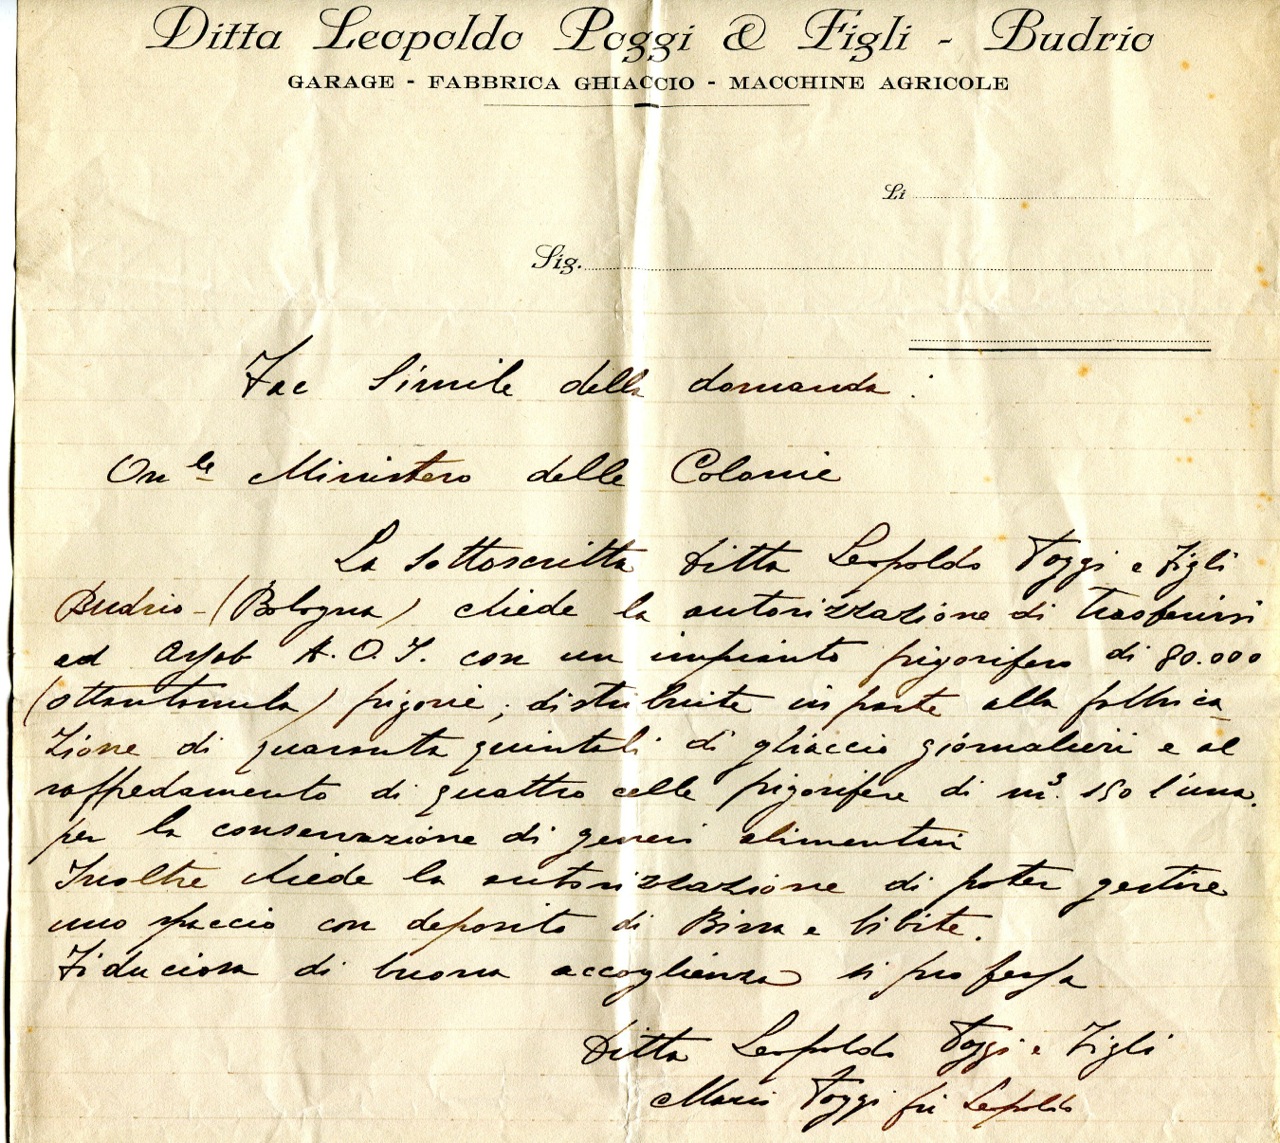 Ditta Leopoldo Poggi & Figli - Budrio
GARAGE - FABBRICA GHIACCIO - MACCHINE AGRICOLE
Li
Sig.
Fac Simile della domanda :
On.le Ministero delle Colonie
La sottoscritta Ditta Leopoldo Poggi e Figli
Budrio - (Bologna) chiede la autorizzazione di trasferirsi
ad A.O.I. con un impianto frigorifero di 80.000
(ottantamila) frigorie, distribuite in parte alla fabbrica
zione di quaranta quintali di ghiaccio giornalieri e al
raffredamento di quattro celle frigorifere di m³. 150 l'una.
per la conservazione di generi alimentari
Inoltre chiede la autorizzazione di poter gestire
uno spaccio con deposito di Birra e bibite.
Fiduciosa di buona accoglienza si professa
Ditta Leopoldo Poggi e Figli
Mario Poggi fu Leopoldo